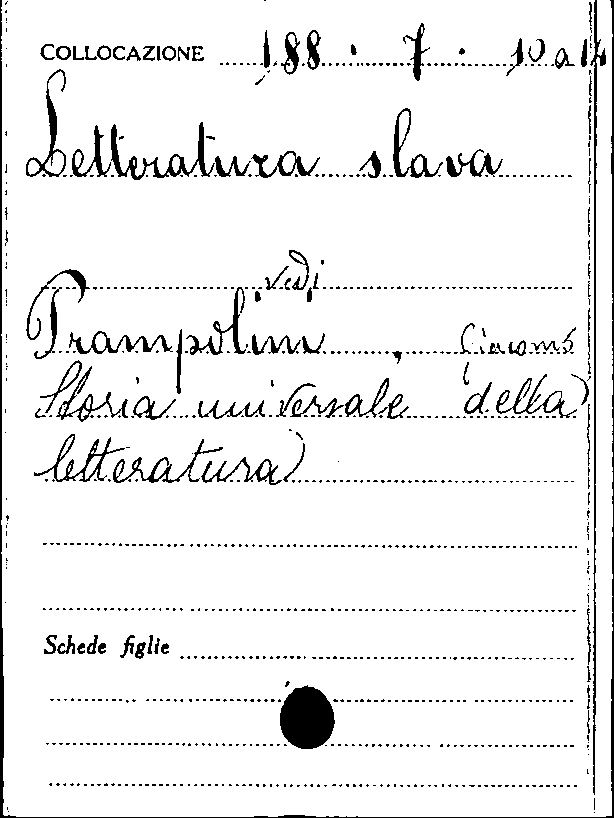 COLLOCAZIONE 188 . 7 . 10 a 14
Letteratura slava
vedi
Prampolini , Giacomo
Storia universale della
letteratura
Schede figlie